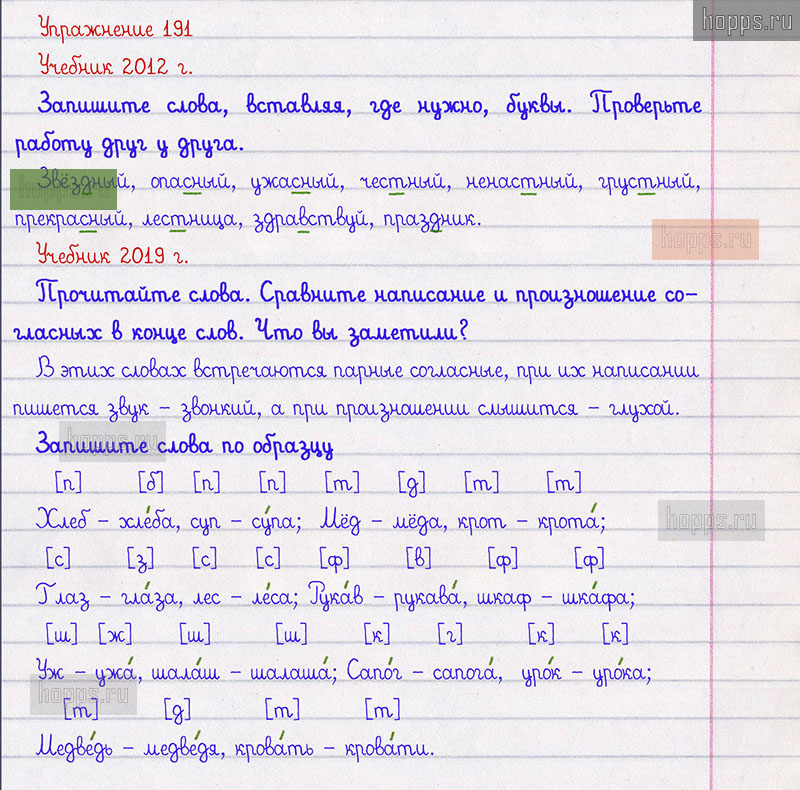 hopps.ru
Упражнение 191
Учебник 2012 г.
Запишите слова, вставляя, где нужно, буквы. Проверьте
работу друг у друга.
Звёздный, опасный, ужасный, честный, ненастный, грустный,
hopps.ru
прекрасный, лестница, здравствуй, праздник.
hopps.ru
Учебник 2019 г.
Прочитайте слова. Сравните написание и произношение со-
гласных в конце слов. Что вы заметили?
В этих словах встречаются парные согласные, при их написании
пишется звук – звонкий, а при произношении слышится – глухой.
Запишите слова по образцу
hopps.ru
[п] [б] [п] [п] [т] [д] [т] [т]
Хлеб – хле́ба, суп – су́па; Мёд – мёда, крот – крота́;
hopps.ru
[с] [з] [с] [с] [ф] [в] [ф] [ф]
Глаз – гла́за, лес – ле́са; Рука́в – рукава́, шкаф – шка́фа;
[ш] [ж] [ш] [ш] [к] [г] [к] [к]
Уж – ужа́, шала́ш – шалаша́; Сапо́г – сапога́, уро́к – уро́ка;
hopps.ru
[т] [д] [т] [т]
Медве́дь – медве́дя, крова́ть – крова́ти.